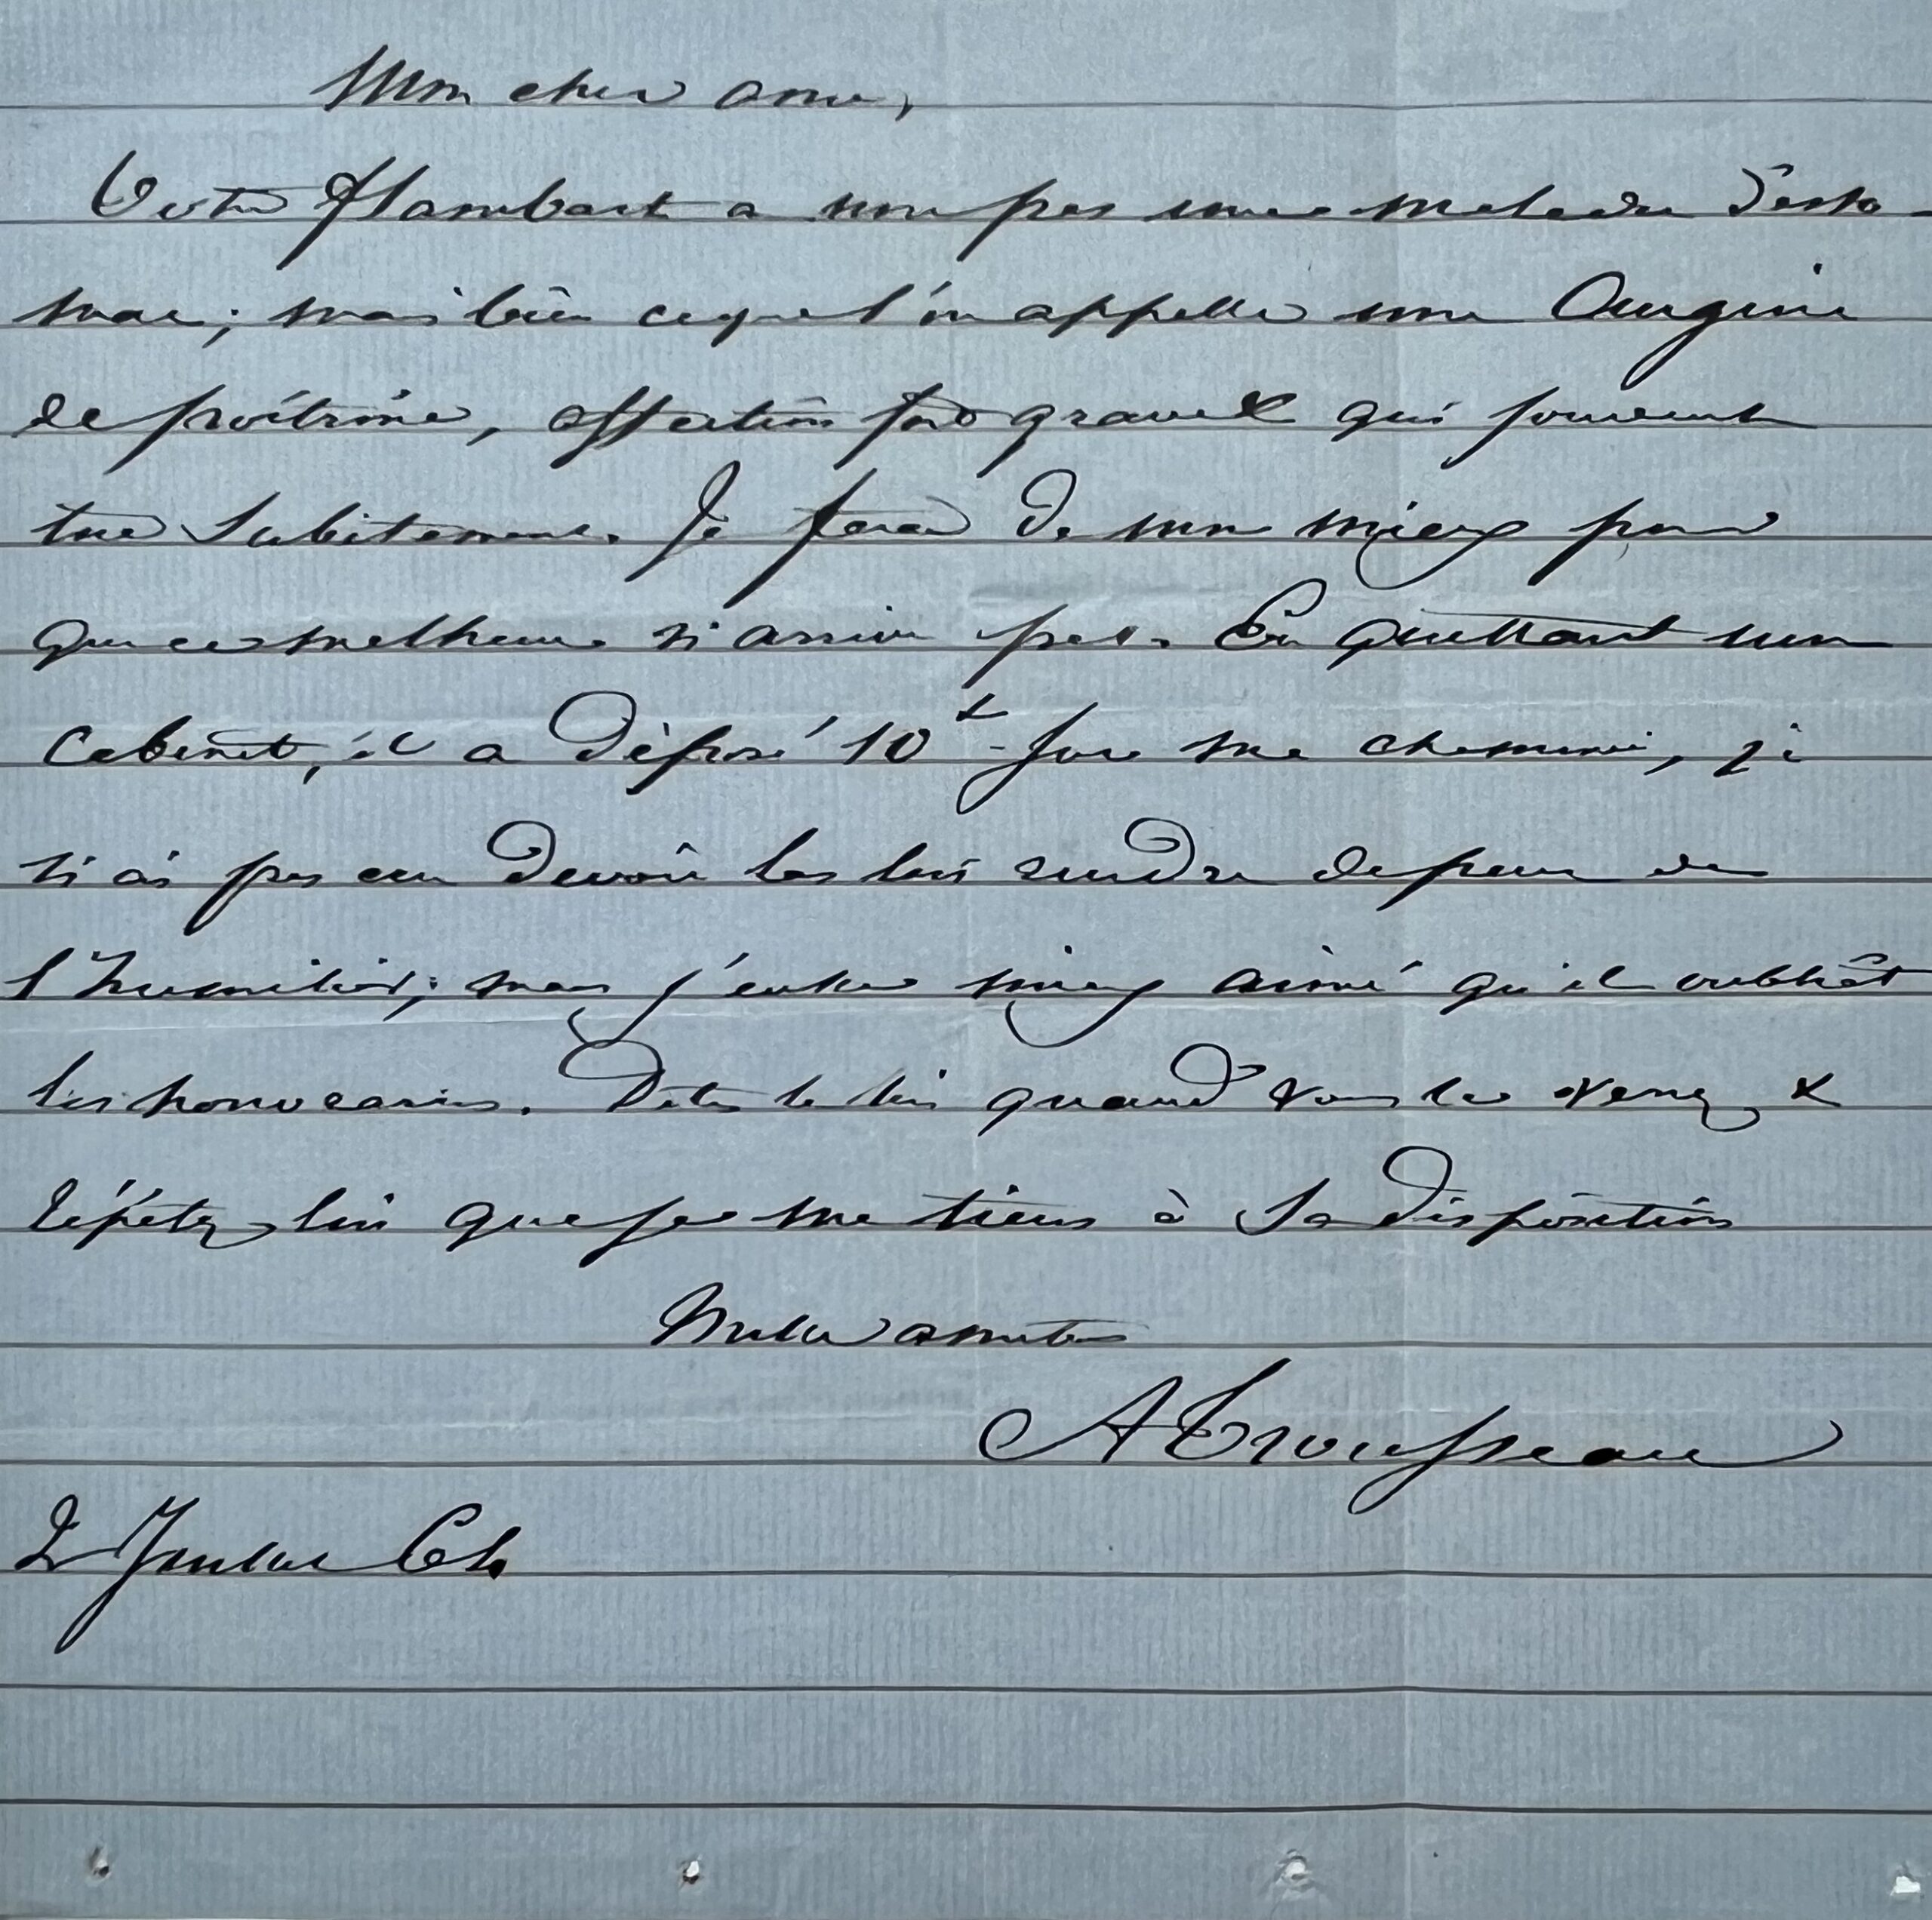 Mon cher ami,
Votre Flambart a non pas une maladie d'esto-
mac; mais bien ce que l'on appelle une Angine
de poitrine, affection fort grave & qui souvent
tue subitement. Je ferai de mon mieux pour
que ce malheur n'arrive pas. En quittant mon
Cabinet, il a déposé 10 sur ma cheminée, je
n'ai pas cru devoir les lui rendre de peur de
l'humilier; mais j'eusse mieux aimé qu'il oubliât
les honoraires. Dites le lui quand vous le verrez &
répétez lui que je me tiens à sa disposition
Mille amitiés
A Trousseau
2 Janvier